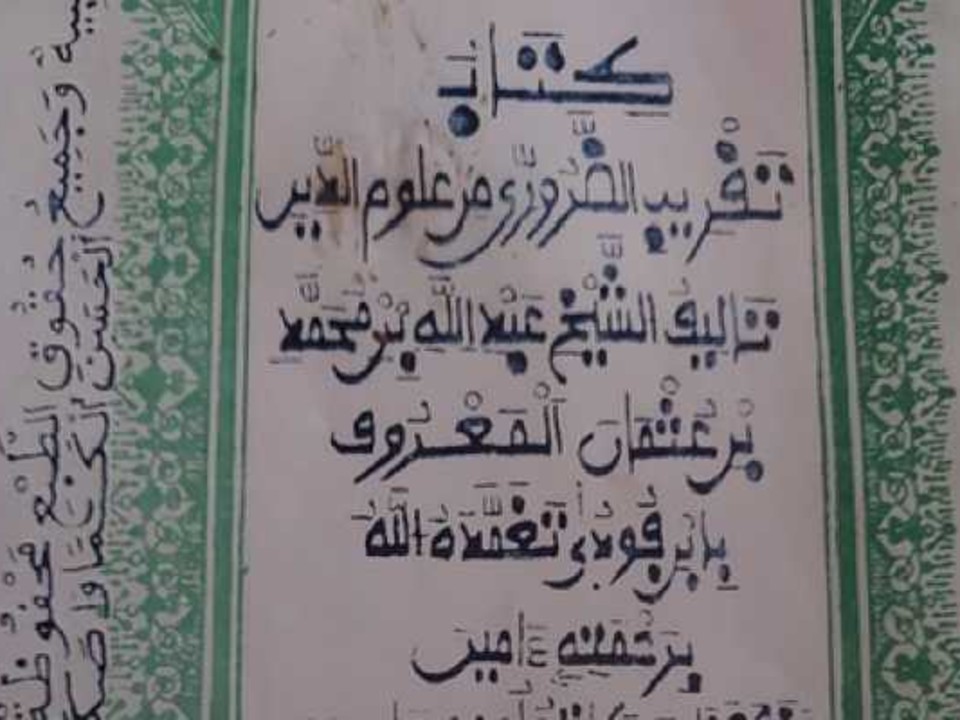 كِتَابُ
تَقْرِيبِ الضَّرُورِيِّ مِنْ عُلُومِ الدِّينِ
تَالِيفُ الشَّيْخِ عَبْدِ اللَّهِ بْنِ مُحَمَّدِ
بْنِ عُثْمَانَ الْمَعْرُوفِ
بِابْنِ فُودُيَ تَغَمَّدَهُ اللَّهُ
بِرَحْمَتِهِ ءَامِينَ
وَجَمِيعُ حُقُوقِ الطَّبْعِ مَحْفُوظَةٌ